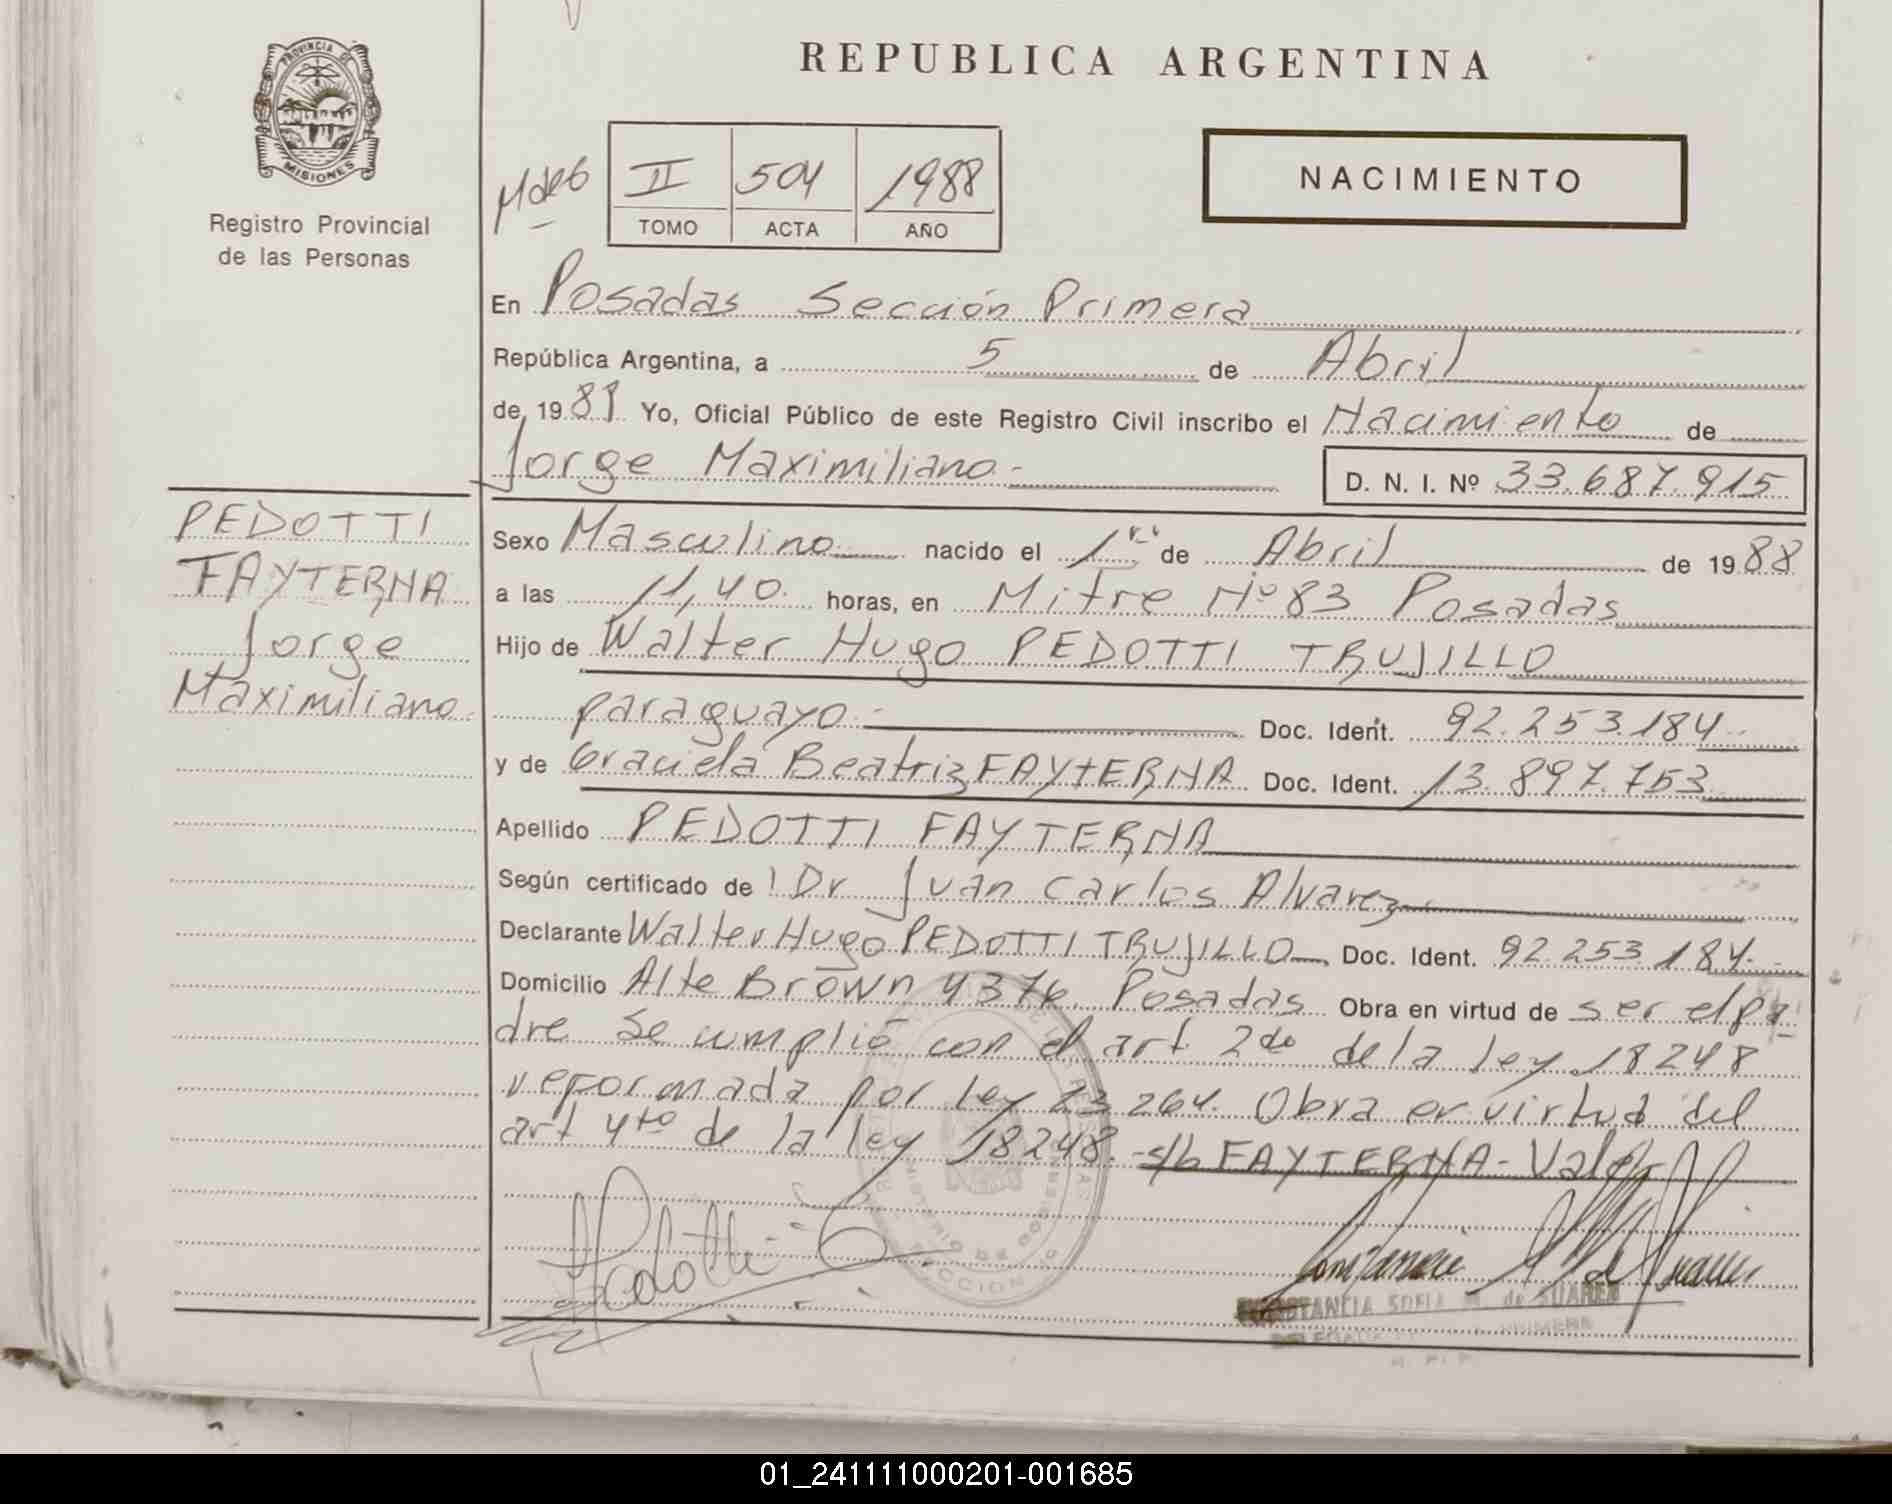 REPUBLICA ARGENTINA
PROVINCIA DE
MISIONES
Registro Provincial
de las Personas
II 504 1988
TOMO ACTA AÑO
NACIMIENTO
En Posadas Sección Primera
República Argentina, a 5 de Abril
de 1988 Yo, Oficial Público de este Registro Civil inscribo el Nacimiento de
Jorge Maximiliano.-
D. N. I. Nº 33.687.915
PEDOTTI
FAYTERNA
Jorge
Maximiliano.
Sexo Masculino nacido el 1ro de Abril de 1988
a las 11,40. horas, en Mitre Nº 83 Posadas
Hijo de Walter Hugo PEDOTTI TRUJILLO
paraguayo.- Doc. Ident. 92.253.184.-
y de Graciela Beatriz FAYTERNA Doc. Ident. 13.897.753
Apellido PEDOTTI FAYTERNA
Según certificado de Dr Juan Carlos Alvarez
Declarante Walter Hugo PEDOTTI TRUJILLO Doc. Ident. 92.253.184.-
Domicilio Alte Brown 4376 Posadas Obra en virtud de ser el pa-
dre se cumplió con el art 2do de la ley 18248
reformada por ley 23264. Obra en virtud del
art 4to de la ley 18248.- s/b FAYTERNA - Vale
CONSTANCIA SOFIA M. de SUAREZ
01_241111000201-001685